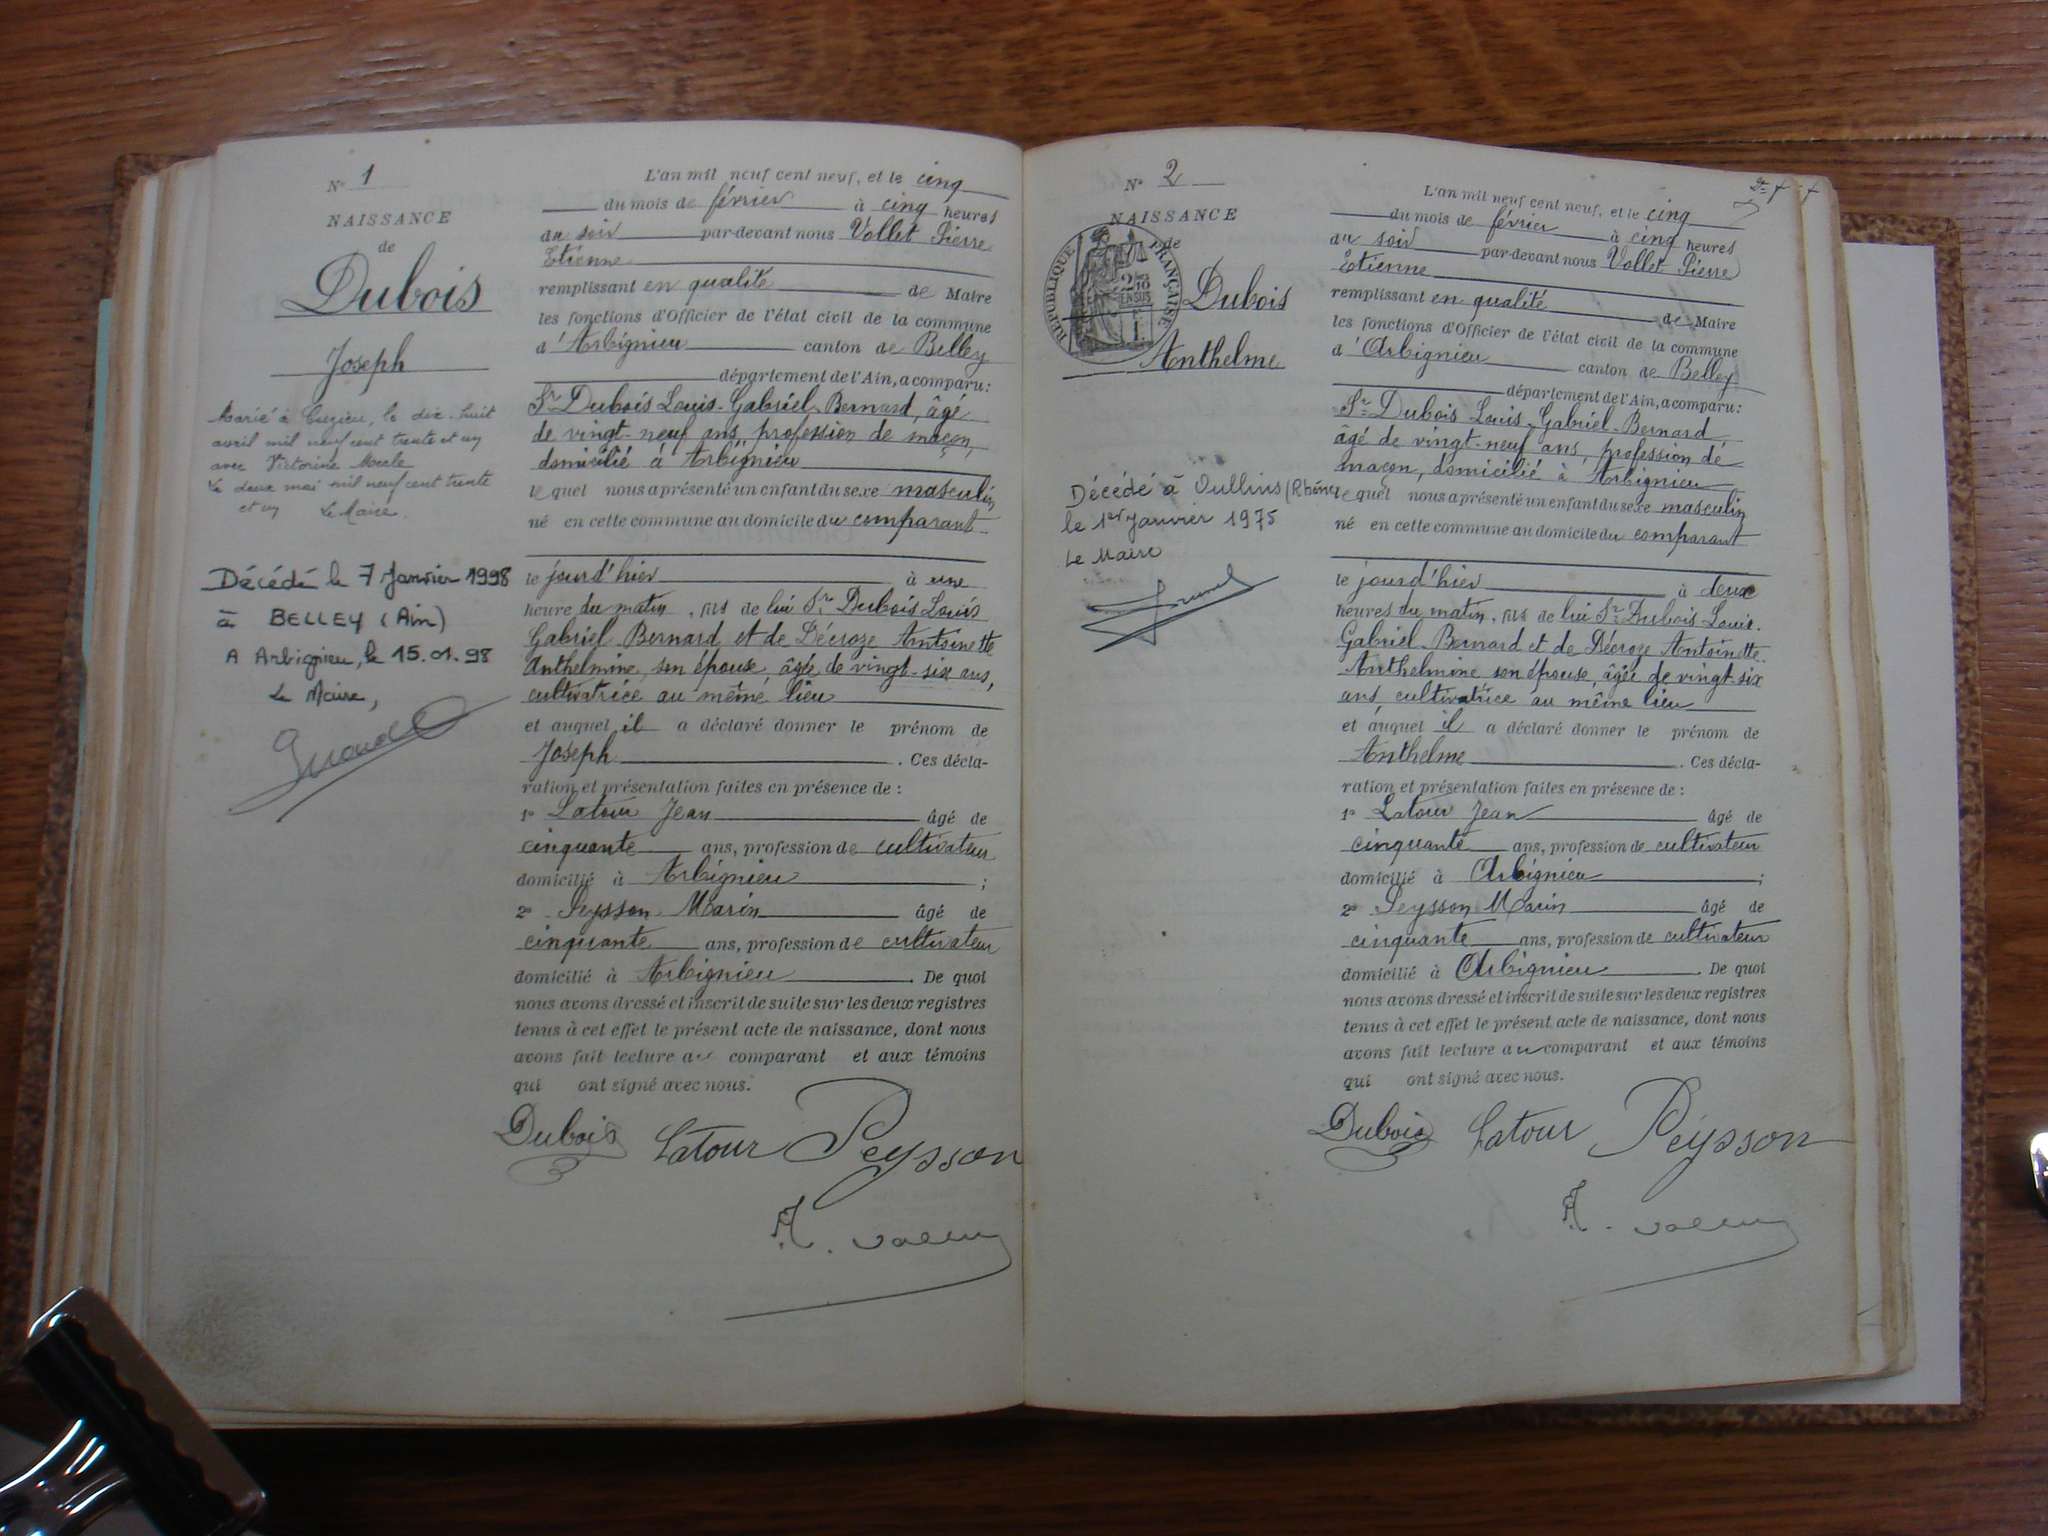 N° 1
NAISSANCE
de
Dubois
Joseph
Marié à Cuzieu, le dix-huit
avril mil neuf cent trente et un
avec Victorine
Le deux mai mil neuf cent trente
et un Le Maire.
Décédé le 7 Janvier 1998
à BELLEY (Ain)
A Arbignieu, le 15.01.98
Le Maire,
L'an mil neuf cent neuf, et le cinq
du mois de février à cinq heures
du soir par-devant nous Vollet Pierre
Etienne
remplissant en qualité de Maire
les fonctions d'Officier de l'état civil de la commune
d'Arbignieu canton de Belley
département de l'Ain, a comparu:
Sr Dubois Louis-Gabriel-Bernard, âgé
de vingt-neuf ans, profession de maçon,
domicilié à Arbignieu
lequel nous a présenté un enfant du sexe masculin
né en cette commune au domicile du comparant
le jourd'hier à une
heure du matin, fils de lui Sr Dubois Louis
Gabriel-Bernard et de Décroze Antoinette
Anthelmine, son épouse, âgée de vingt-six ans,
cultivatrice au même lieu
et auquel il a déclaré donner le prénom de
Joseph. Ces décla-
ration et présentation faites en présence de :
1° Latour Jean âgé de
cinquante ans, profession de cultivateur
domicilié à Arbignieu ;
2° Peysson Marin âgé de
cinquante ans, profession de cultivateur
domicilié à Arbignieu. De quoi
nous avons dressé et inscrit de suite sur les deux registres
tenus à cet effet le présent acte de naissance, dont nous
avons fait lecture au comparant et aux témoins
qui ont signé avec nous.
Dubois Latour Peysson
N° 2
NAISSANCE
de
RÉPUBLIQUE FRANÇAISE
Dubois
Anthelme
Décédé à Oullins (Rhône)
le 1er Janvier 1975
Le Maire
L'an mil neuf cent neuf, et le cinq
du mois de février à cinq heures
du soir par-devant nous Vollet Pierre
Etienne
remplissant en qualité de Maire
les fonctions d'Officier de l'état civil de la commune
d'Arbignieu canton de Belley
département de l'Ain, a comparu:
Sr Dubois Louis-Gabriel-Bernard
âgé de vingt-neuf ans, profession de
maçon, domicilié à Arbignieu
lequel nous a présenté un enfant du sexe masculin
né en cette commune au domicile du comparant
le jourd'hier à deux
heures du matin, fils de lui Sr Dubois Louis-
Gabriel-Bernard et de Décroze Antoinette
Anthelmine son épouse, âgée de vingt-six
ans, cultivatrice au même lieu
et auquel il a déclaré donner le prénom de
Anthelme. Ces décla-
ration et présentation faites en présence de :
1° Latour Jean âgé de
cinquante ans, profession de cultivateur
domicilié à Arbignieu ;
2° Peysson Marin âgé de
cinquante ans, profession de cultivateur
domicilié à Arbignieu. De quoi
nous avons dressé et inscrit de suite sur les deux registres
tenus à cet effet le présent acte de naissance, dont nous
avons fait lecture au comparant et aux témoins
qui ont signé avec nous.
Dubois Latour Peysson